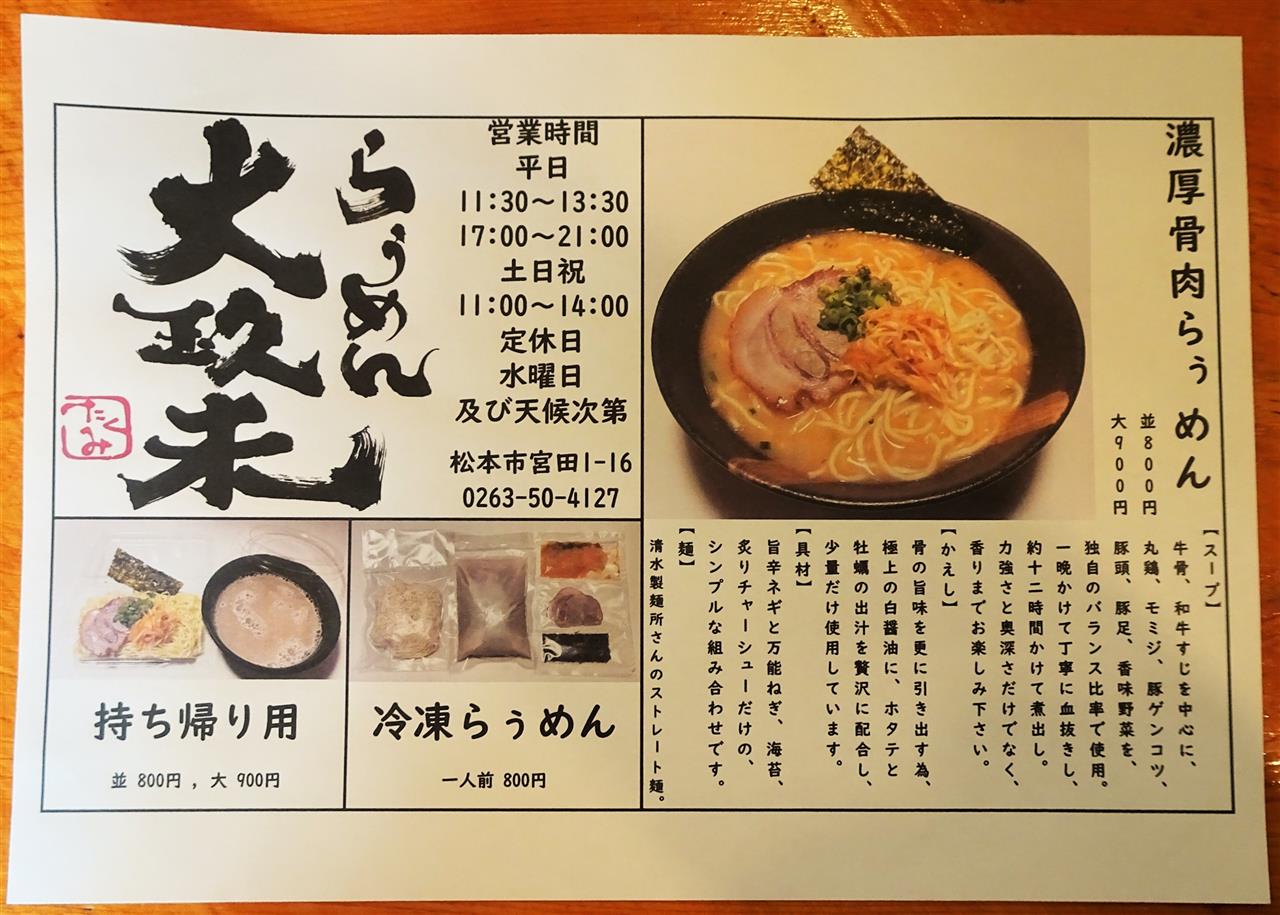 らぅめん
大政未
たくみ
営業時間
平日
11:30～13:30
17:00～21:00
土日祝
11:00～14:00
定休日
水曜日
及び天候次第
松本市宮田1-16
0263-50-4127
濃厚骨肉らぅめん
並800円
大900円
【スープ】
牛骨、和牛すじを中心に、
丸鶏、モミジ、豚ゲンコツ、
豚頭、豚足、香味野菜を、
独自のバランス比率で使用。
一晩かけて丁寧に血抜きし、
約十二時間かけて煮出し。
力強さと奥深さだけでなく、
香りまでお楽しみ下さい。
【かえし】
骨の旨味を更に引き出す為、
極上の白醤油に、ホタテと
牡蠣の出汁を贅沢に配合し、
少量だけ使用しています。
【具材】
旨辛ネギと万能ねぎ、海苔、
炙りチャーシューだけの、
シンプルな組み合わせです。
【麺】
清水製麺所さんのストレート麺。
持ち帰り用
並 800円 , 大 900円
冷凍らぅめん
一人前 800円